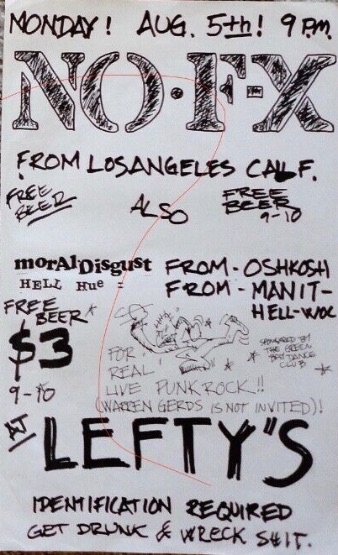 MONDAY! AUG. 5th! 9 P.M.
NO·F·X
FROM LOSANGELES CALF.
FREE BEER
ALSO
FREE BEER 9-10
morAlDisgust FROM - OSHKOSH
HELL Hue = FROM - MANIT-
HELL-WOC
FREE BEER*
$3
9-10
SPONSORED BY
THE GREEN
BAY DANCE
CLUB
FOR
REAL
LIVE PUNK ROCK!!
(WARREN GERDS IS NOT INVITED)!
AT LEFTY'S
IDENTIFICATION REQUIRED
GET DRUNK & WRECK SHIT.